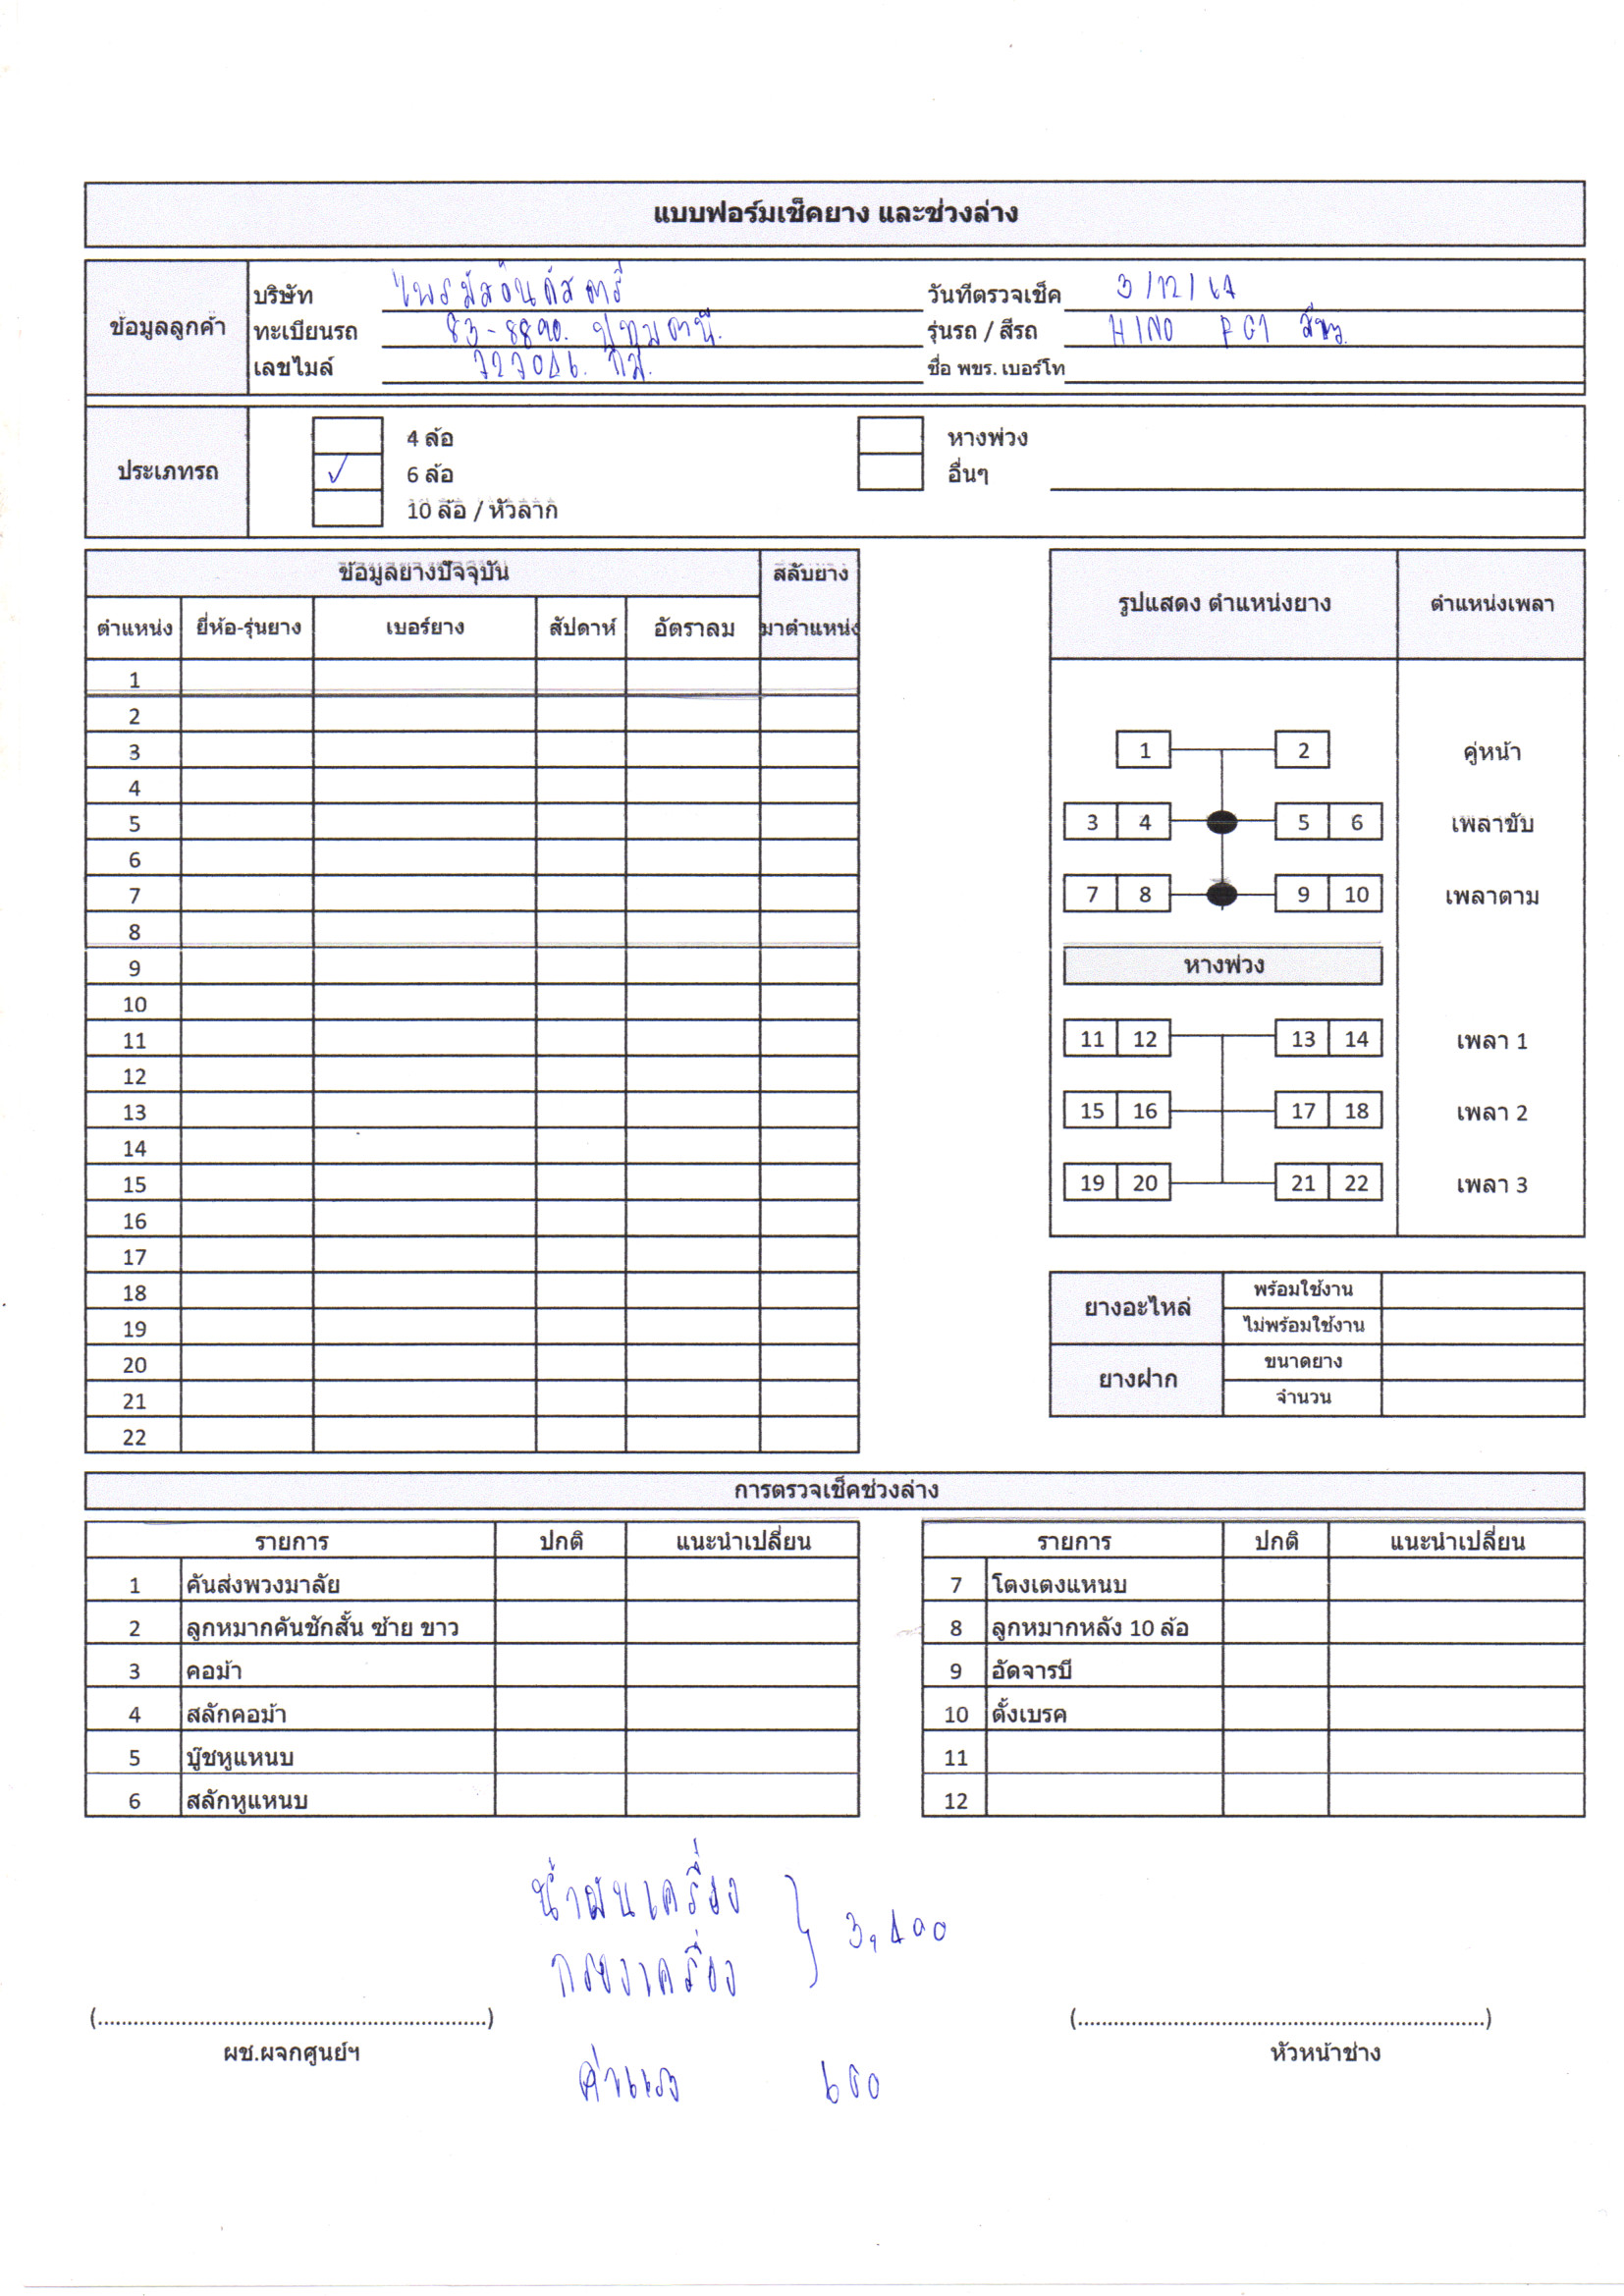 แบบฟอร์มเช็คยาง และช่วงล่าง
ข้อมูลลูกค้า
บริษัท ไพรมัสอินดัสตารี วันทีตรวจเช็ค 3/12/67
ทะเบียนรถ 83-8890. ปทุมธานี. รุ่นรถ / สีรถ HINO FG1 สีขาว.
เลขไมล์ กม. ชื่อ พขร. เบอร์โท
ประเภทรถ
4 ล้อ หางพ่วง
✓ 6 ล้อ อื่นๆ
10 ล้อ / หัวลาก
ข้อมูลยางปัจจุบัน สลับยาง
ตำแหน่ง ยี่ห้อ-รุ่นยาง เบอร์ยาง สัปดาห์ อัตราลม มาตำแหน่ง
1
2
3
4
5
6
7
8
9
10
11
12
13
14
15
16
17
18
19
20
21
22
รูปแสดง ตำแหน่งยาง ตำแหน่งเพลา
1 2 คู่หน้า
3 4 5 6 เพลาขับ
7 8 9 10 เพลาตาม
หางพ่วง
11 12 13 14 เพลา 1
15 16 17 18 เพลา 2
19 20 21 22 เพลา 3
ยางอะไหล่ พร้อมใช้งาน
ไม่พร้อมใช้งาน
ยางฝาก ขนาดยาง
จำนวน
การตรวจเช็คช่วงล่าง
รายการ ปกติ แนะนำเปลี่ยน
1 คันส่งพวงมาลัย
2 ลูกหมากคันชักสั้น ซ้าย ขาว
3 คอม้า
4 สลักคอม้า
5 บู๊ชหูแหนบ
6 สลักหูแหนบ
รายการ ปกติ แนะนำเปลี่ยน
7 โตงเตงแหนบ
8 ลูกหมากหลัง 10 ล้อ
9 อัดจารบี
10 ตั้งเบรค
11
12
น้ำมันเครื่อง
กรองเครื่อง } 3,400
ค่าแรง 600
(................................................................)
ผช.ผจกศูนย์ฯ
(....................................................................)
หัวหน้าช่าง